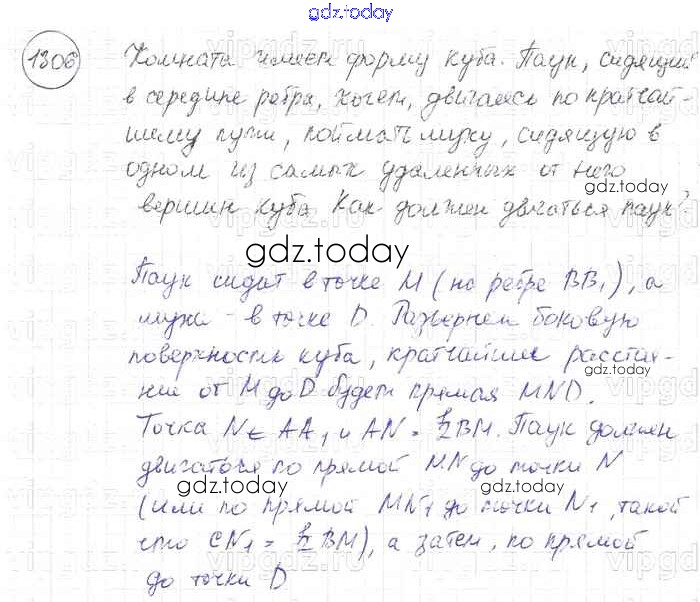 gdz.today
1306
Комната имеет форму куба. Паук, сидящий
в середине ребра, хочет, двигаясь по кратчай-
шему пути, поймать муху, сидящую в
одном из самых удаленных от него
gdz.today
вершин куба. Как должен двигаться паук?
gdz.today
Паук сидит в точке M (на ребре BB₁), а
муха - в точке D. Развернем боковую
поверхность куба, кратчайшие расстоя-
нии от M до D будет прямая MND.
Точка N ∈ AA₁ и AN = ½BM. Паук должен
двигаться по прямой MN до точки N
gdz.today
(или по прямой MN₁ до точки N₁, такой
что CN₁ = ½ BM), а затем, по прямой
до точки D
gdz.today